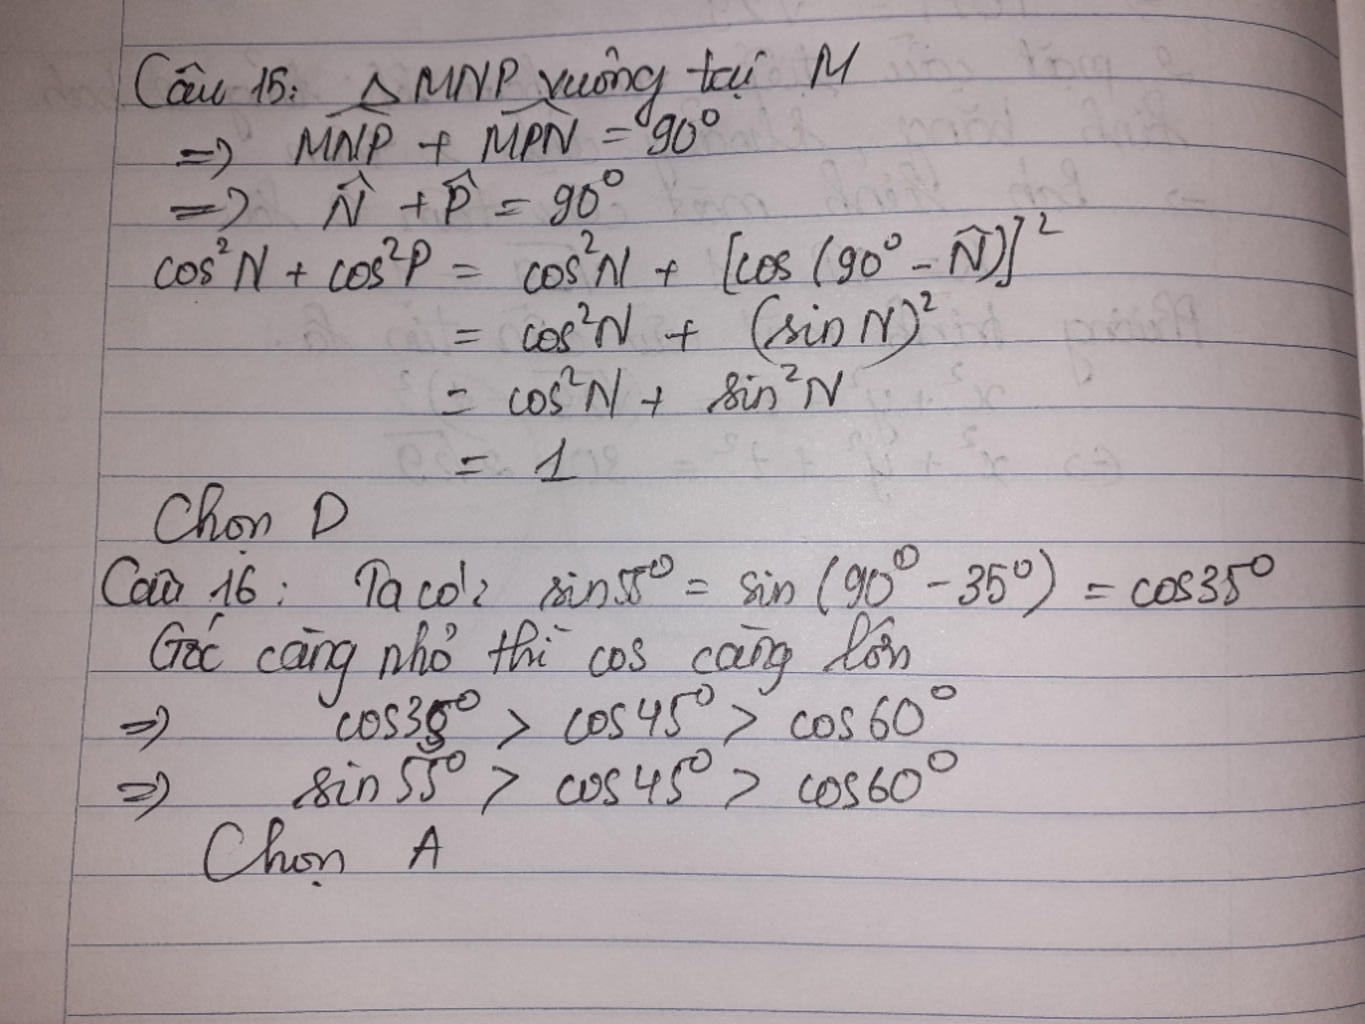 Câu 15: Δ MNP vuông tại M
=> \widehat{MNP} + \widehat{MPN} = 90°
=> N̂ + P̂ = 90°
cos²N + cos²P = cos²N + [cos (90° - N̂)]²
= cos²N + (sin N)²
= cos²N + sin²N
= 1
Chọn D
Câu 16: Ta có: sin55° = sin (90° - 35°) = cos35°
Góc càng nhỏ thì cos càng lớn
=> cos35° > cos45° > cos60°
=> sin 55° > cos45° > cos60°
Chọn A